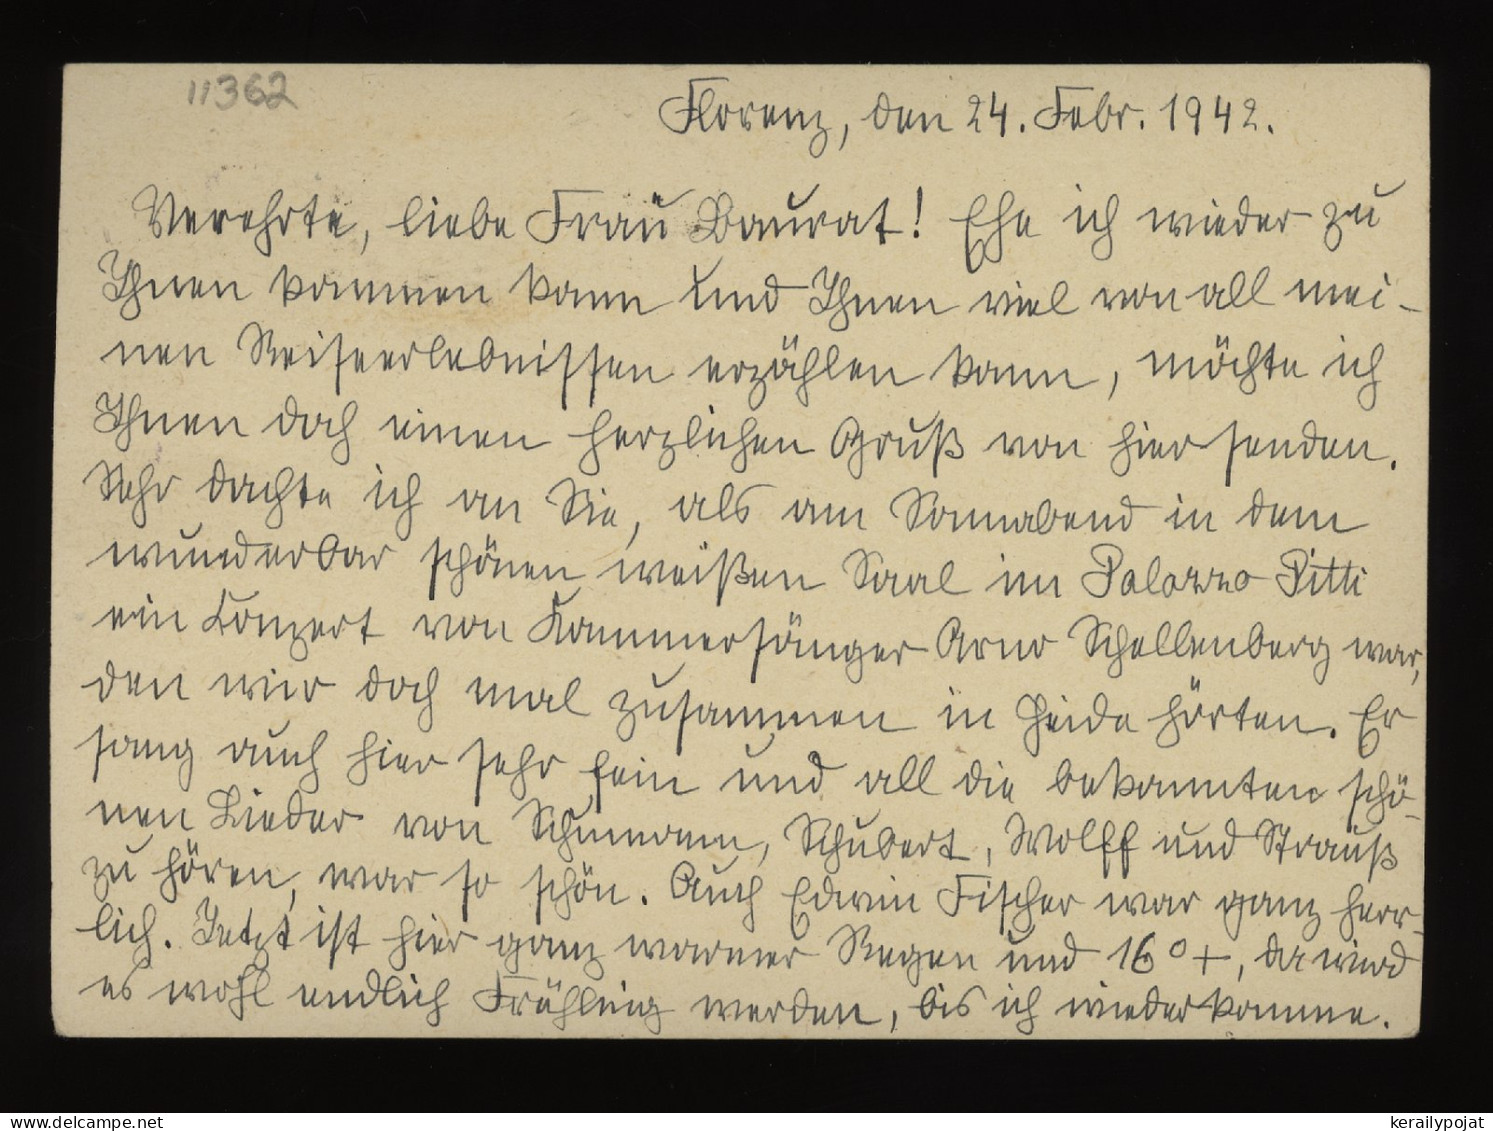 11362
Florenz, den 24. Febr. 1942.
Verehrte, liebe Frau Baurat! Ehe ich wieder zu
Ihnen kommen kann und Ihnen viel von all mei-
nen Reiseerlebnissen erzählen kann, möchte ich
Ihnen doch einen herzlichen Gruß von hier senden.
Sehr dachte ich an Sie, als am Sonnabend in dem
wunderbar schönen weißen Saal im Palazzo Pitti
ein Konzert von Kammersänger Arno Schellenberg war,
den wir doch mal zusammen in Heide hörten. Er
sang auch hier sehr fein und all die bekannten schö-
nen Lieder von Schumann, Schubert, Wolff und Strauß
zu hören, war so schön. Auch Edwin Fischer war ganz herr-
lich. Jetzt ist hier ganz warmer Regen und 16°+, da wird
es wohl endlich Frühling werden, bis ich wiederkomme.
kerailypojat